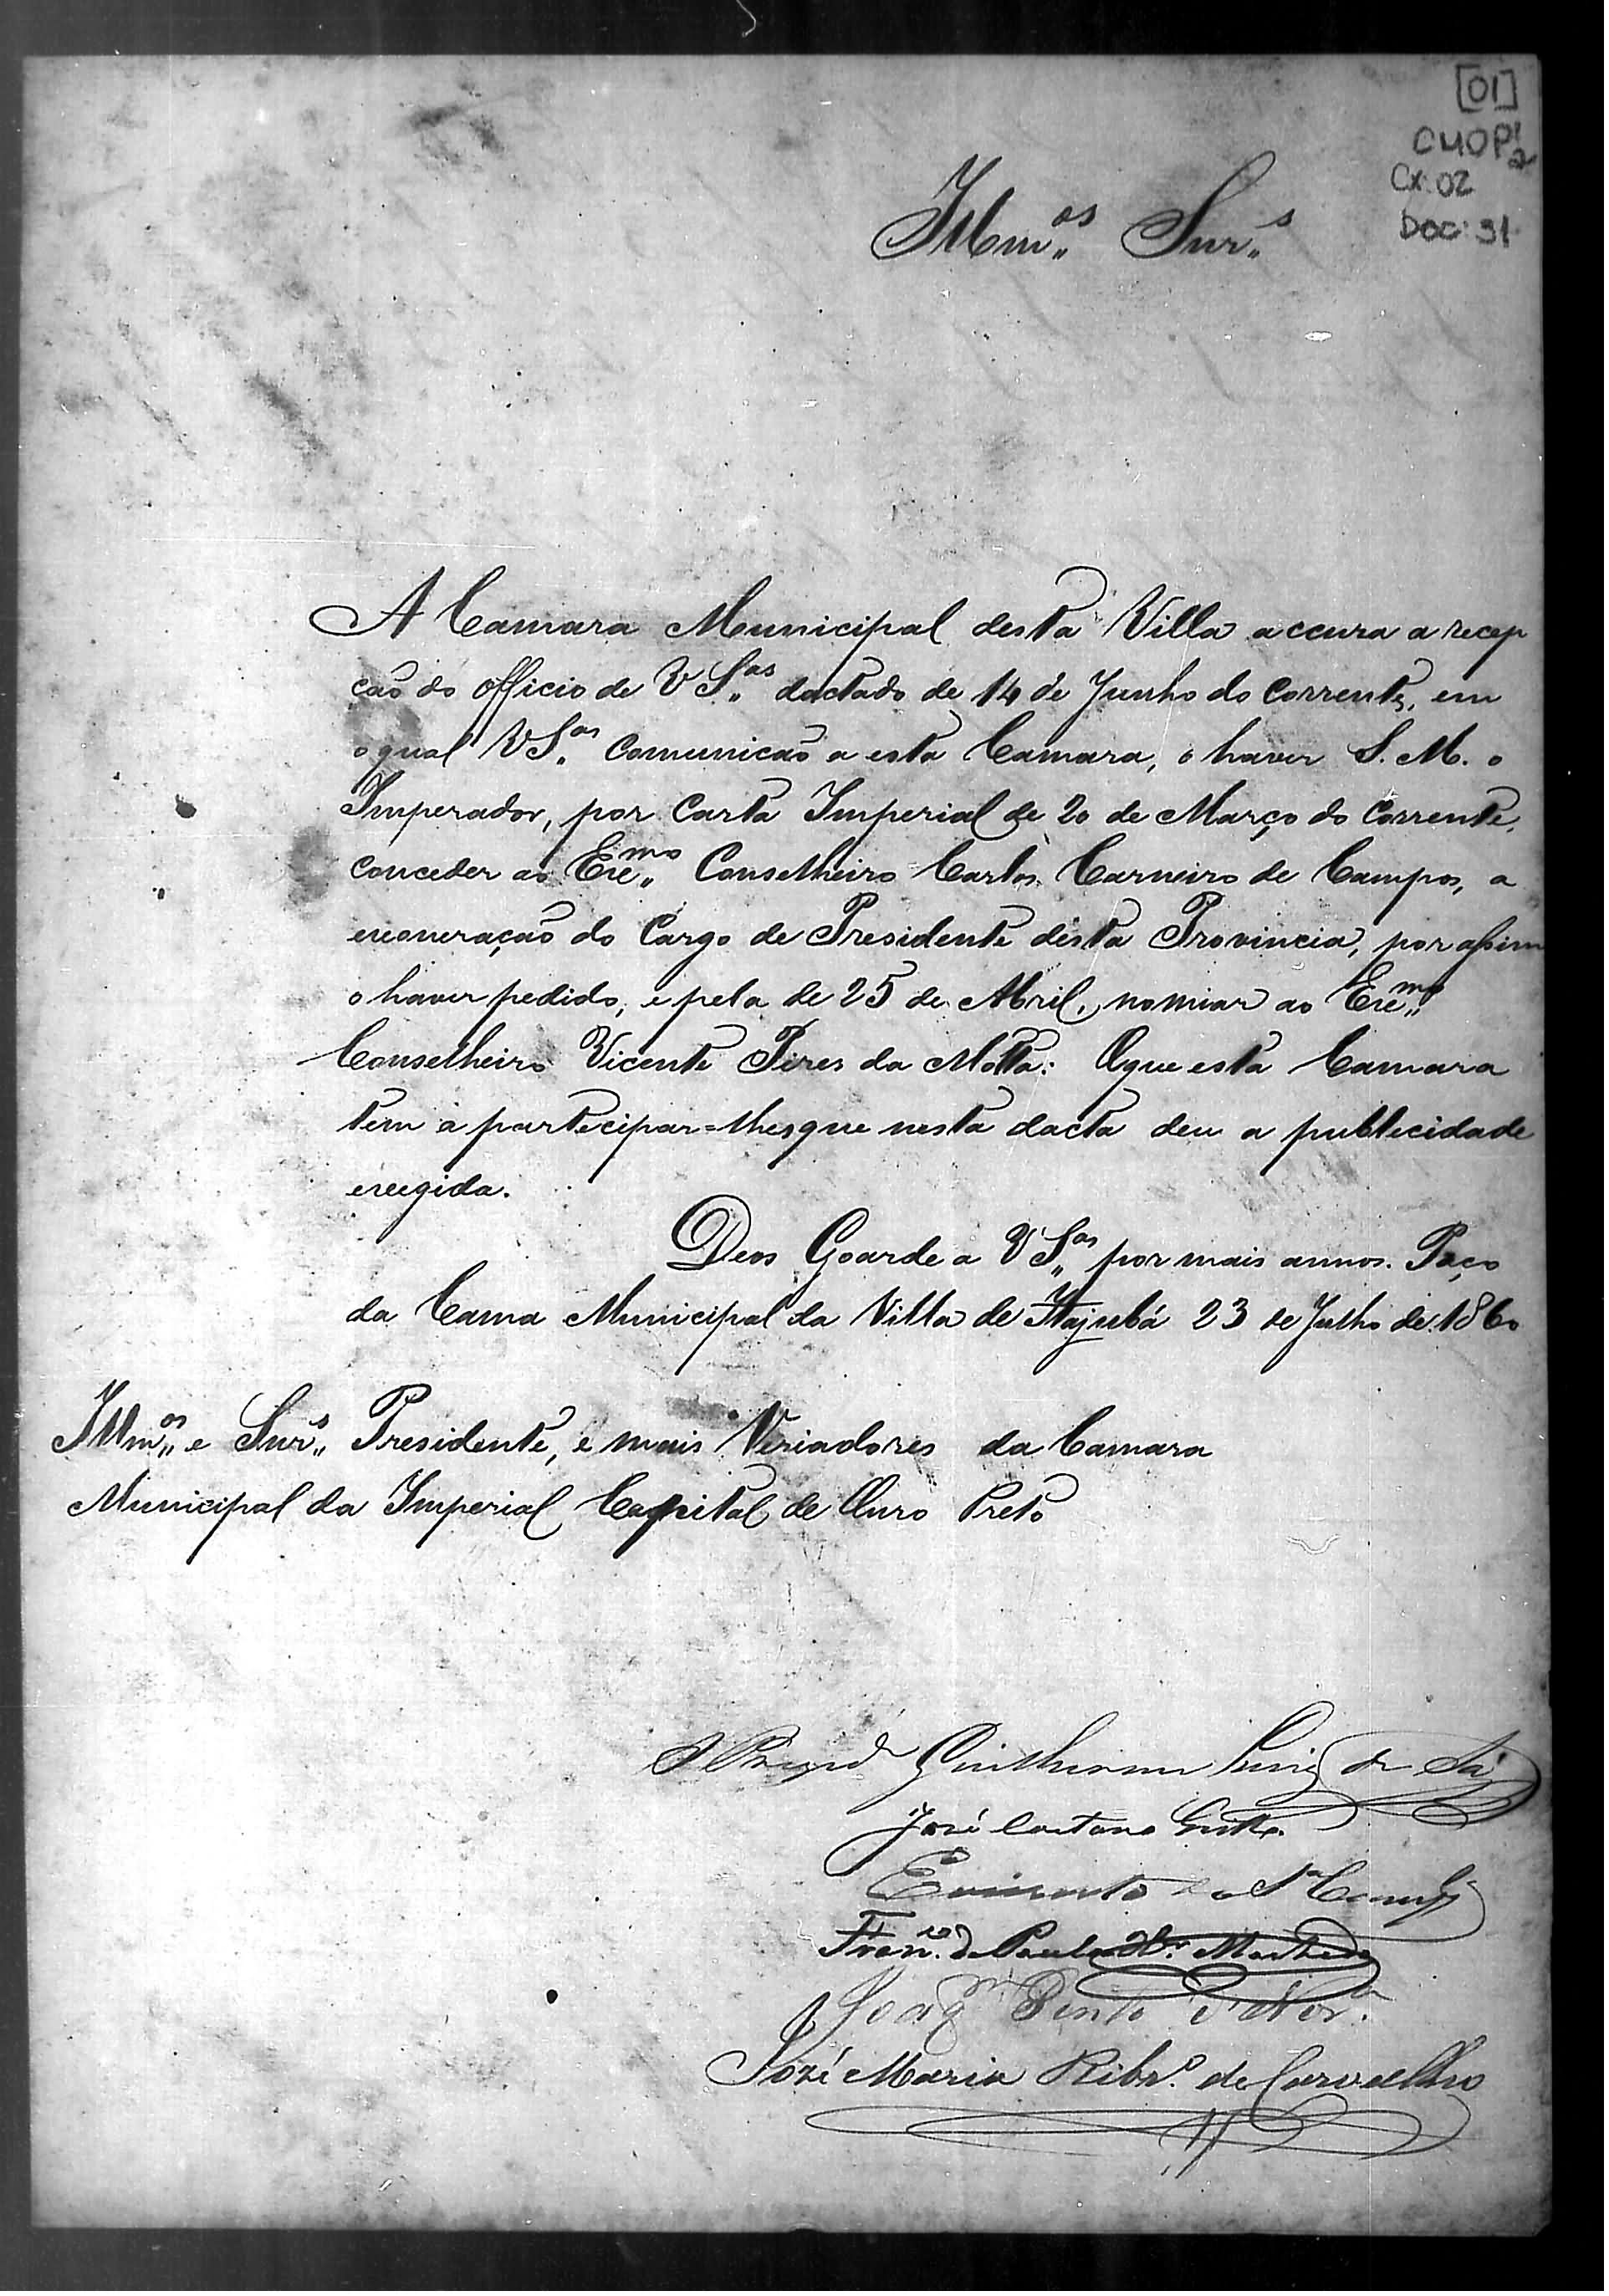 [01]
CMOP 1/2
Cx: 02
DOC: 31
Illm.os Snr.s
A Camara Municipal desta Villa accura a recep
ção do officio de V S.as dactado de 14 de Junho do corrente, em
o qual V S.as comunicão a esta Camara, o haver S. M. o
Imperador, por Carta Imperial de 20 de Março do corrente,
conceder ao Exc.mo Conselheiro Carlos Carneiro de Campos, a
exoneração do Cargo de Presidente desta Provincia, por assim
o haver pedido, e pela de 25 de Abril, nomiar ao Exc.mo
Conselheiro Vicente Pires da Motta: Oque esta Camara
tem a partecipar=lhes que nesta dacta deu a publicidade
exegida.
Deos Goarde a V S.as por mais annos. Paço
da Cama Municipal da Villa de Itajubá 23 de Julho de 1860
Illm.os e Snr.s Presidente, e mais Veriadores da Camara
Municipal da Imperial Capital de Ouro Preto
Guilherme Luiz de Sá
José Caetano
Fran.co de Paula Machado
Joaq.m Bento
José Maria Ribr.o de Carvalho